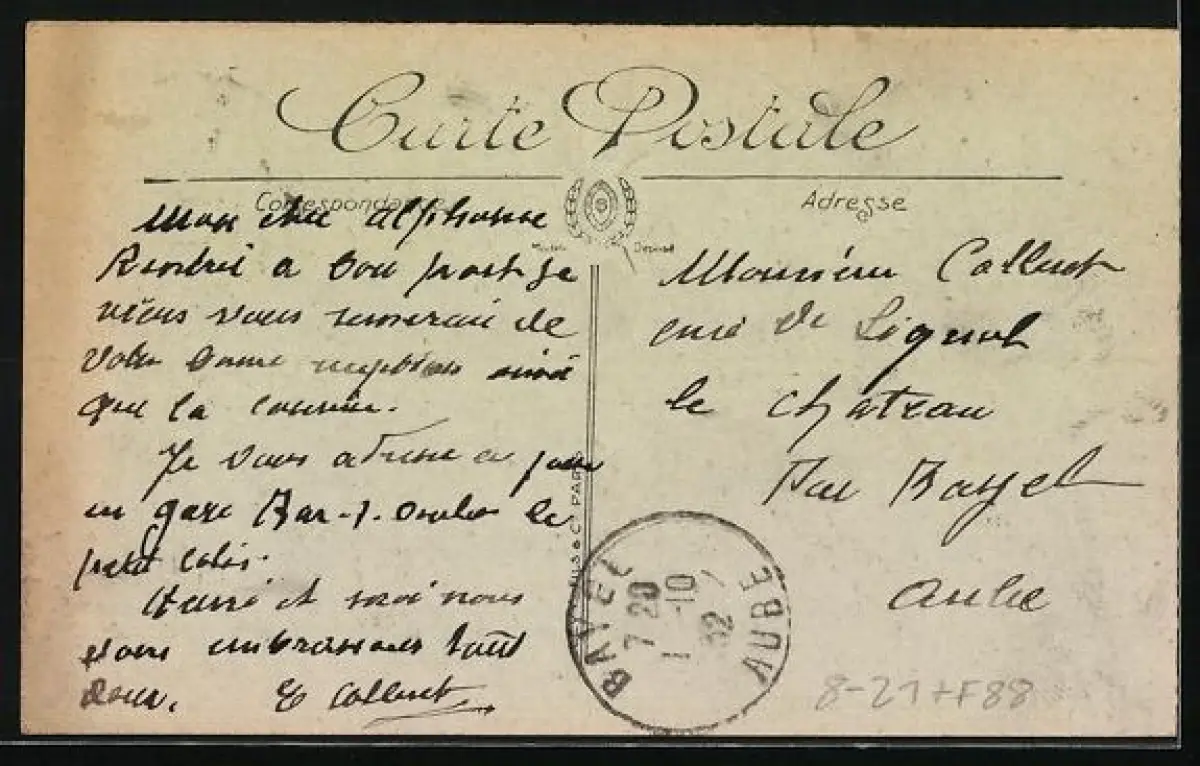 Carte Postale
Correspondance
Adresse
Mon cher Alphonse
Rentré a bon port je
viens vous remercier de
votre bonne reception ainsi
que la cousine.
Je vous adresse a jour
en gare Bar-s-Aube le
petit colis.
et moi nous
vous embrassons tout
deux. E Colluet
Monsieur Colluet
curé de Lignol
le chateau
Par Bayel
Aube
BAYEL
7 20
1 -10
32
AUBE
8-21+F88